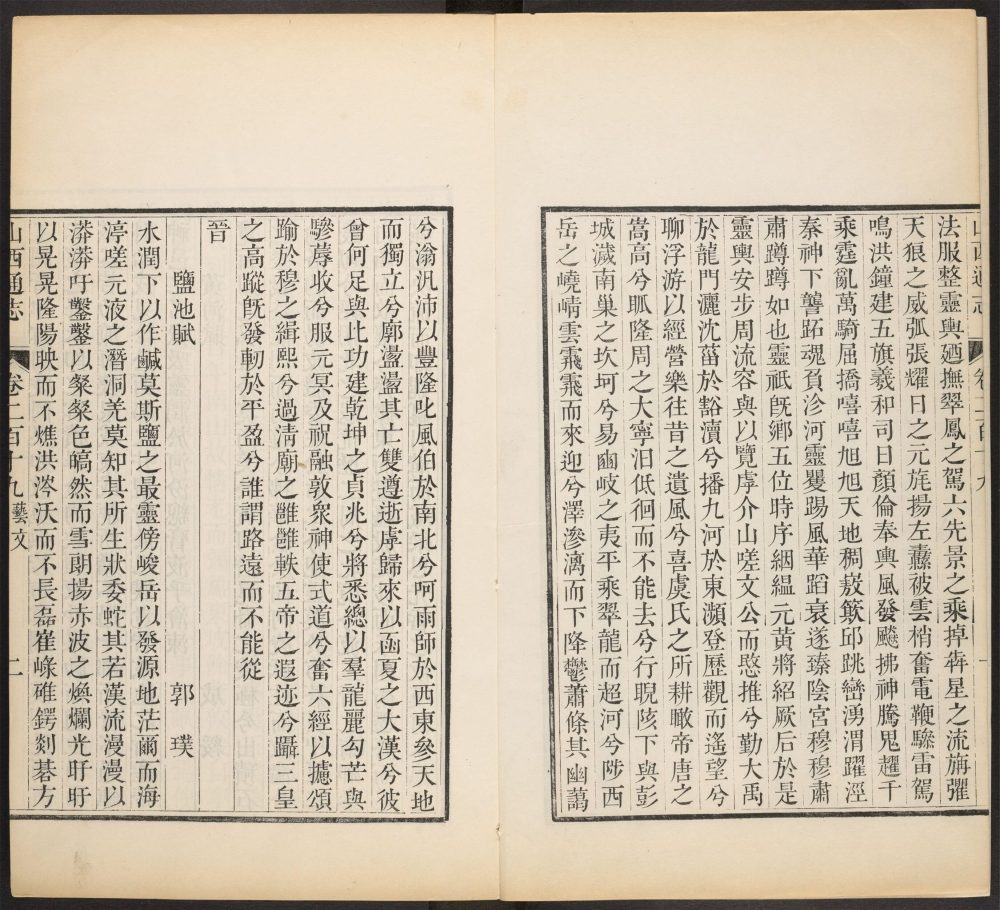 山西通志 卷二百十九 一
法服整靈輿廼撫翠鳳之駕六先景之乘掉犇星之流旃彏
天狼之威弧張耀日之元旄揚左纛被雲梢奮電鞭驂雷駕
鳴洪鐘建五旗羲和司日顏倫奉輿風發飈拂神騰鬼趡千
乘霆亂萬騎屈撟嘻嘻旭旭天地稠嶅簸邱跳巒湧渭躍涇
秦神下讋跖魂負沴河靈矍踢風華蹈衰遂臻陰宮穆穆肅
肅蹲蹲如也靈祇旣鄉五位時序絪縕元黃將紹厥后於是
靈輿安步周流容與以覽虖介山嗟文公而愍推兮勤大禹
於龍門灑沈菑於豁瀆兮播九河於東瀕登歷觀而遙望兮
聊浮游以經營樂往昔之遺風兮喜虞氏之所耕瞰帝唐之
嵩高兮眽隆周之大寧汨低徊而不能去兮行睨陔下與彭
城濊南巢之坎坷兮易豳岐之夷平乘翠龍而超河兮陟西
岳之嶢崝雲霏霏而來迎兮澤滲漓而下降鬱蕭條其幽藹
兮滃汎沛以豐隆叱風伯於南北兮呵雨師於西東參天地
而獨立兮廓盪盪其亡雙遵逝虖歸來以函夏之大漢兮彼
曾何足與比功建乾坤之貞兆兮將悉總以羣龍麗勾芒與
驂蓐收兮服元冥及祝融敦衆神使式道兮奮六經以攄頌
踰於穆之緝熙兮過淸廟之雝雝軼五帝之遐迹兮躡三皇
之高蹤旣發軔於平盈兮誰謂路遠而不能從
晉
鹽池賦 郭璞
水潤下以作鹹莫斯鹽之最靈傍峻岳以發源地茫爾而海
渟嗟元液之潛洞羌莫知其所生狀委蛇其若漢流漫漫以
漭漭吁鑿鑿以粲粲色皜然而雪朗揚赤波之煥爛光旴旴
以晃晃隆陽映而不燋洪涔沃而不長磊崔嵥碓鍔剡碁方
山西通志 卷二百十九藝文 二